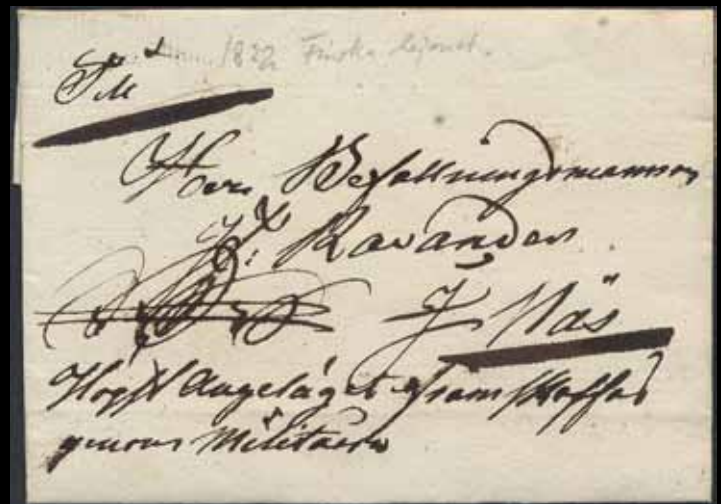 1822 Finska lejonet.
Till
Herr Befallningsmannen
Ravander.
J Näs
Högst Angeläget Framskaffas
genom Militairn